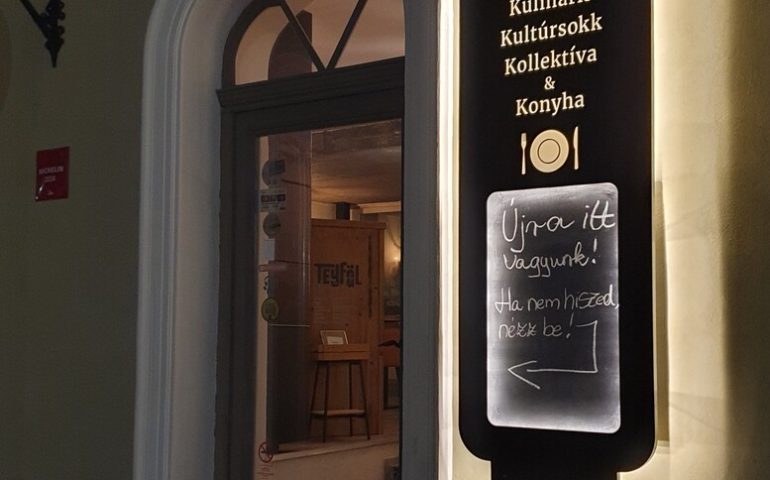 Kulináris
Kultúrsokk
Kollektíva
&
Konyha
MICHELIN
2024
TEJFÖL
Újra itt
vagyunk!
Ha nem hiszed,
nézz be!